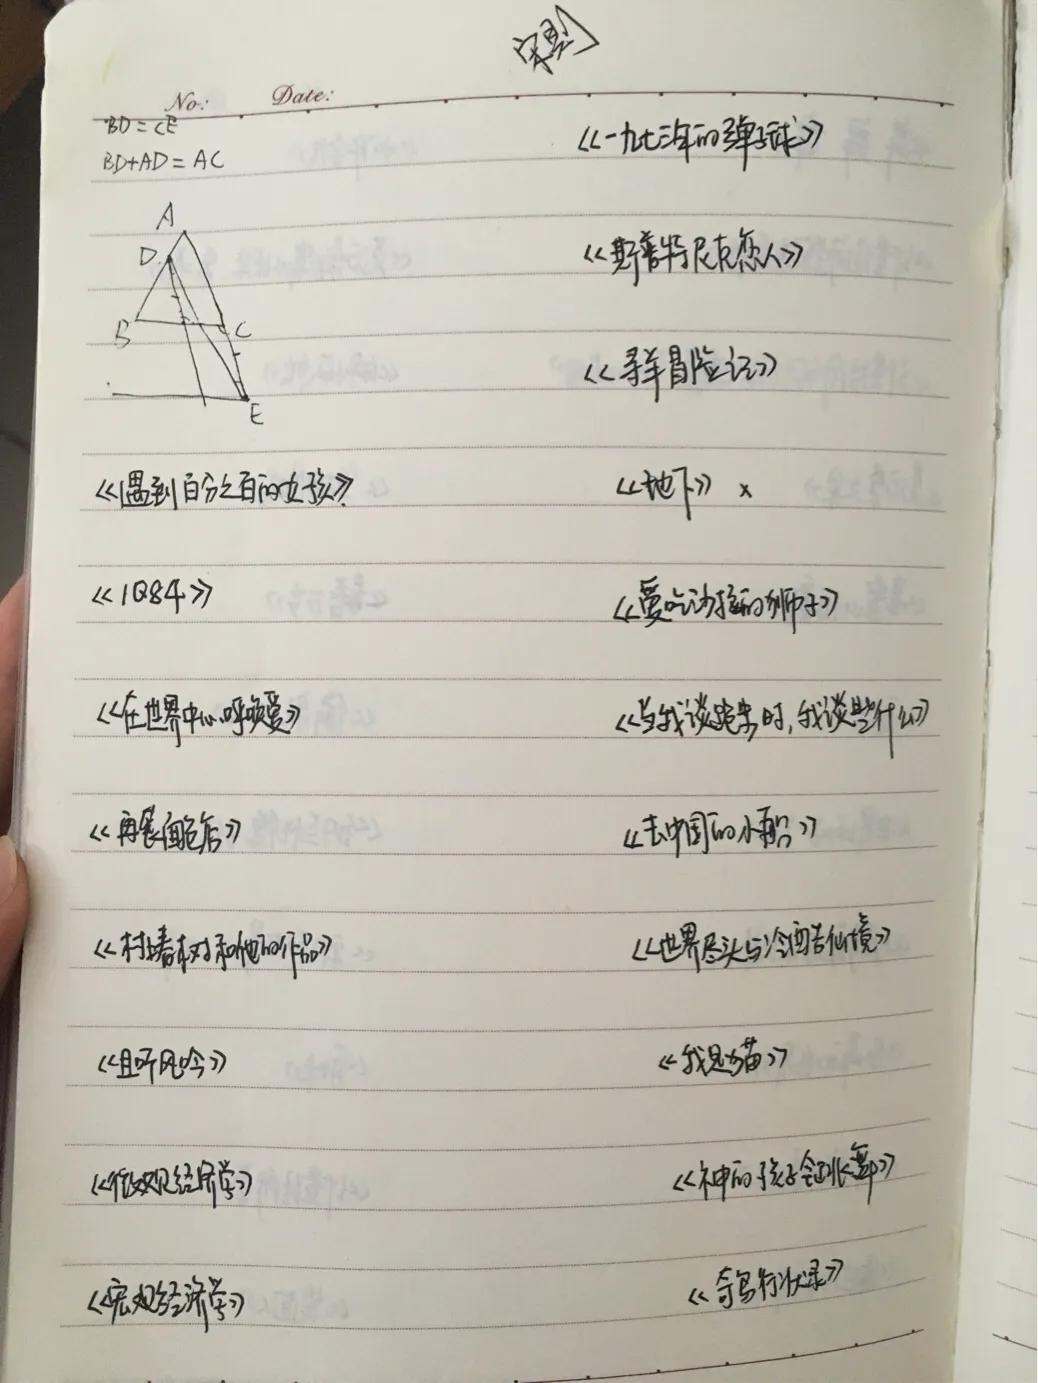 No:
Date:
BD=CE
BD+AD=AC
A
D
B
C
E
《遇到百分之百的女孩》
《1Q84》
《在世界中心呼唤爱》
《再袭面包店》
《村上春树和他的作品》
《且听风吟》
《微观经济学》
《宏观经济学》
《一九七三年的弹子球》
《斯普特尼克恋人》
《寻羊冒险记》
《地下》 x
《爱吃沙拉的狮子》
《当我谈跑步时,我谈些什么》
《去中国的小船》
《世界尽头与冷酷仙境》
《我是猫》
《神的孩子全跳舞》
《奇鸟行状录》